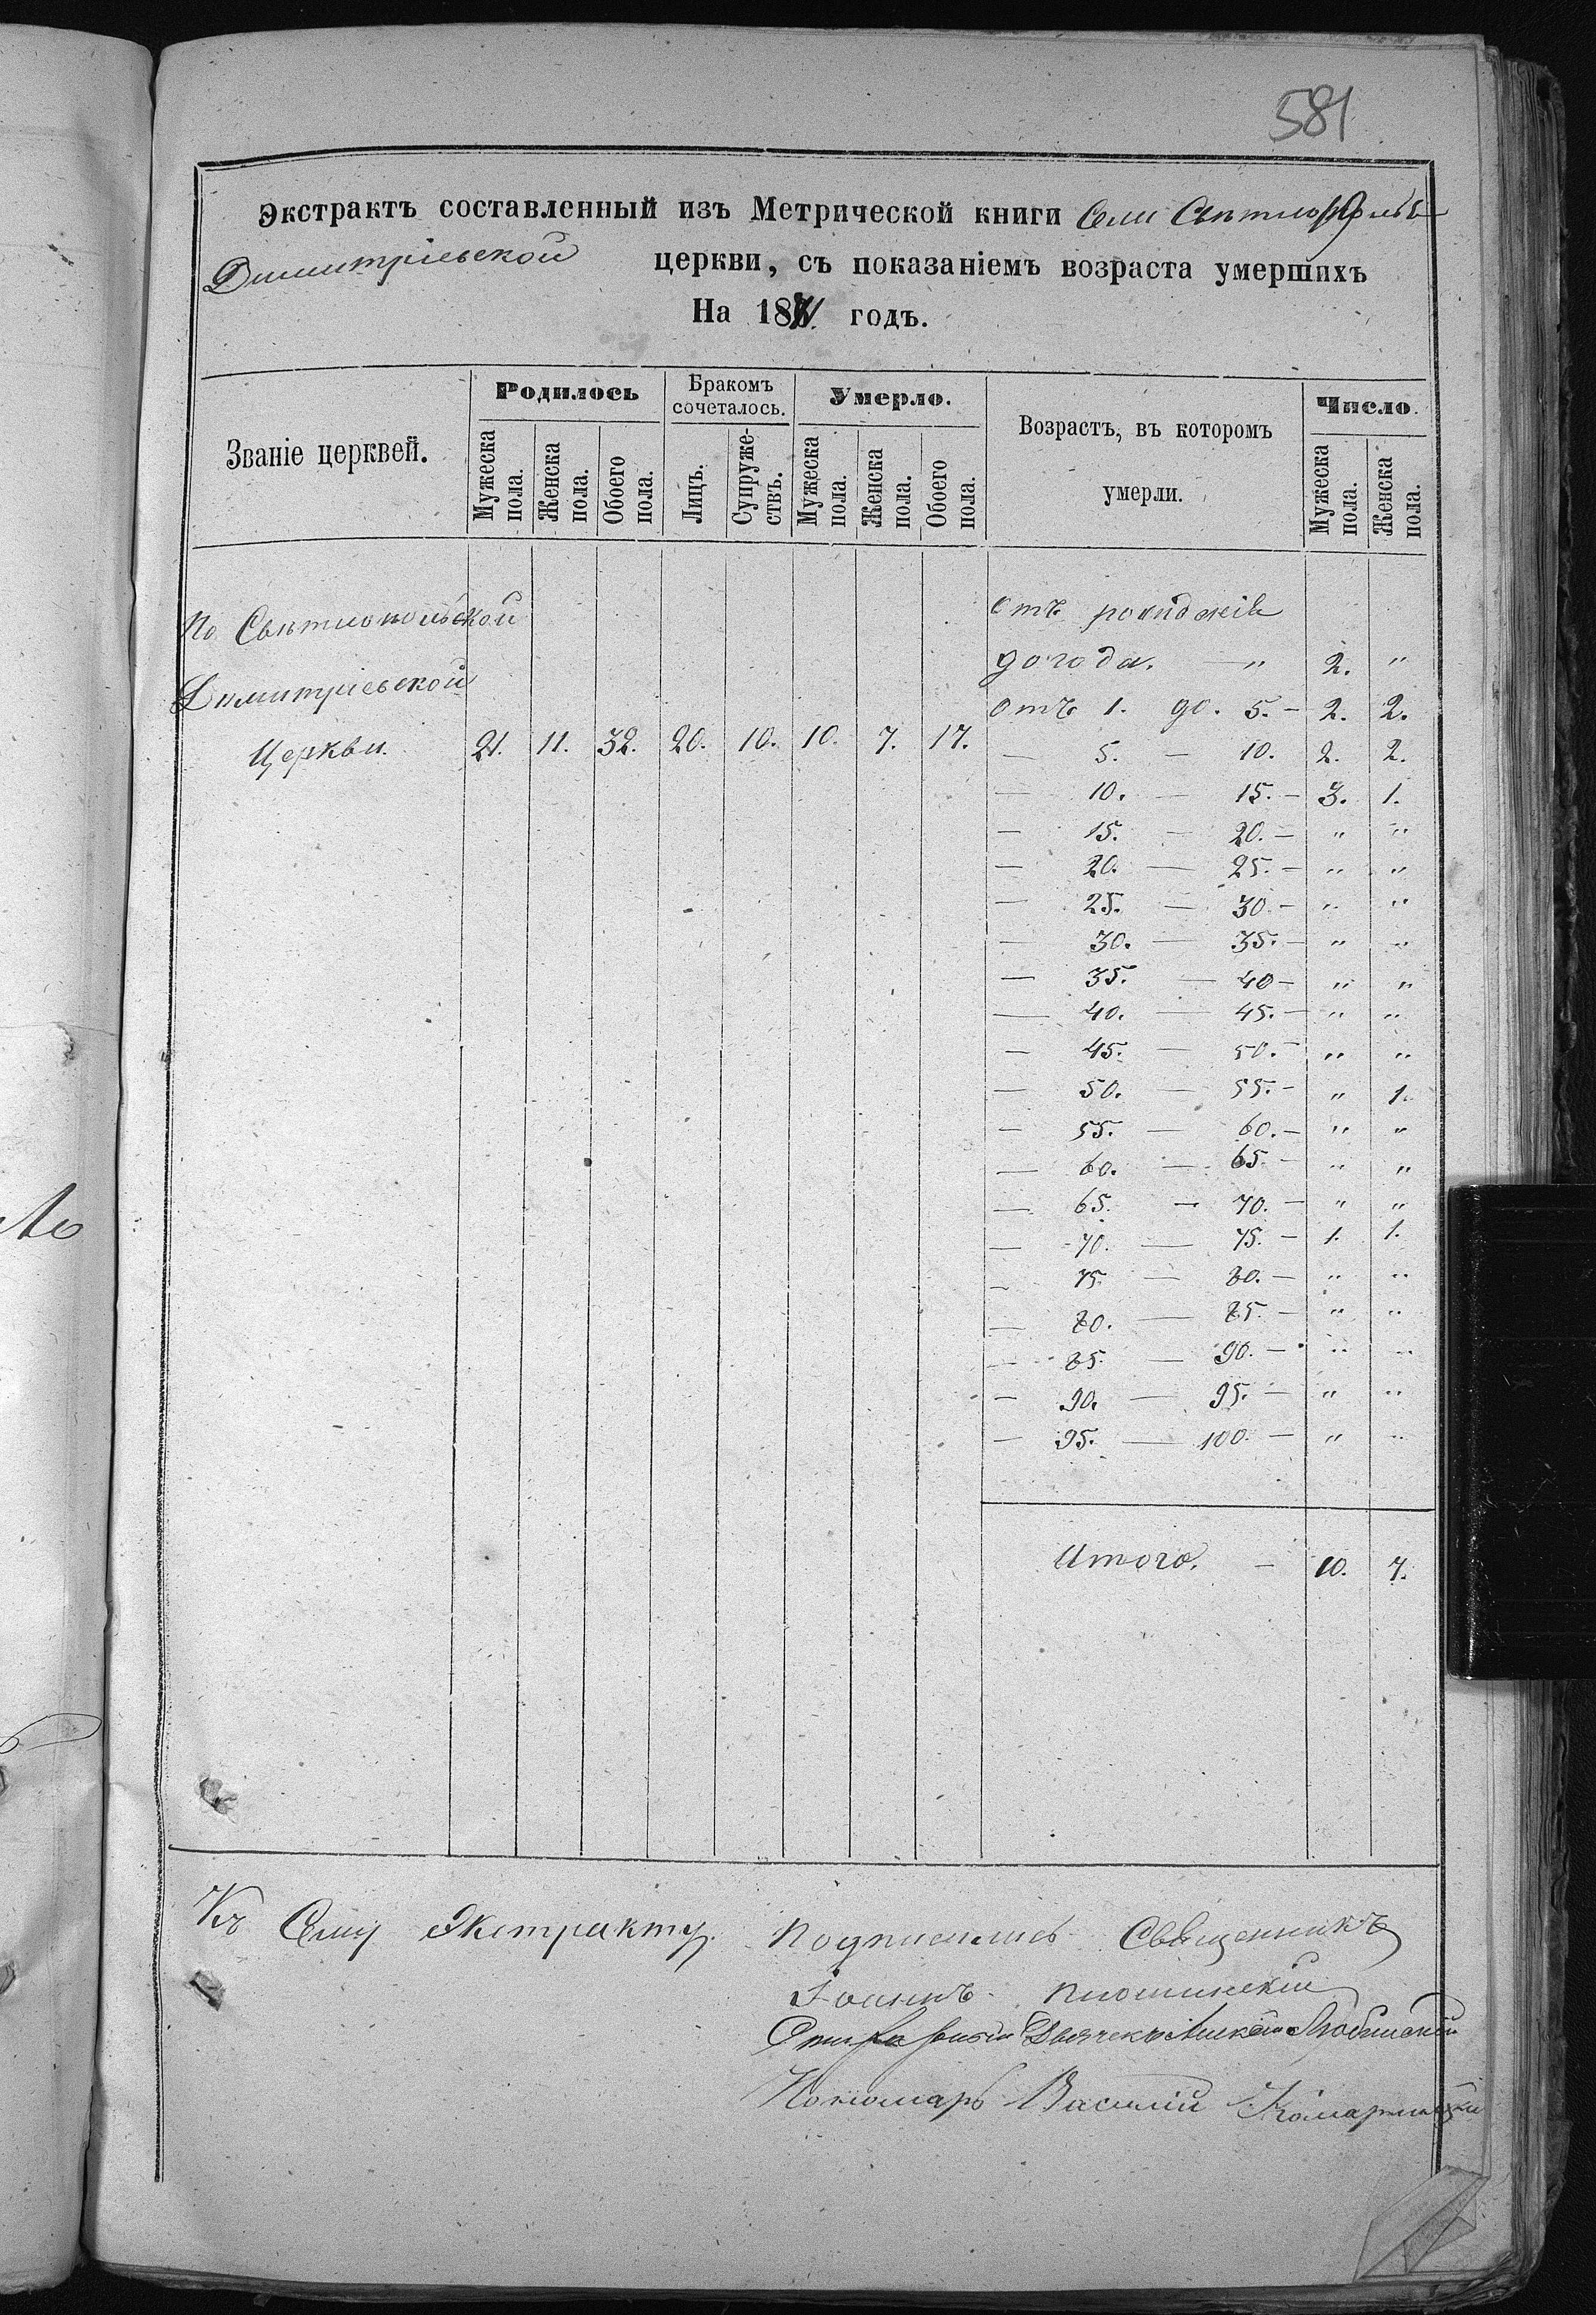 581
Экстрактъ составленный изъ Метрической книги Села
Димитріевской церкви, съ показаніемъ возраста умершихъ
На 1871. годъ.
Званіе церквей. Родилось Бракомъ сочеталось. Умерло. Возрастъ, въ которомъ умерли. Число.
Мужеска пола. Женска пола. Обоего пола. Лицъ. Супружествъ. Мужеска пола. Женска пола. Обоего пола. Мужеска пола. Женска пола.
По Свѣтлопольской отъ рожденія
Димитріевской до года. — " 2. "
отъ 1. до. 5. — 2. 2.
Церкви. 21. 11. 32. 20. 10. 10. 7. 17. — 5. — 10. 2. 2.
— 10. — 15. — 3. 1.
— 15. — 20. — " "
— 20. — 25. — " "
— 25. — 30. — " "
— 30. — 35. — " "
— 35. — 40 — " "
— 40. — 45. — " "
— 45. — 50. — " "
— 50. — 55. — " 1.
— 55. — 60. — " "
— 60. — 65. — " "
— 65. — 70. — " "
— 70. — 75. — 1. 1.
— 75. — 80. — " "
— 80. — 85. — " "
— 85. — 90. — " "
— 90. — 95. — " "
— 95. — 100. — " "
Итого. — 10. 7.
Къ Сему Экстракту. Подписались Священникъ
Іоаннъ
Дьячекъ
Пономарь Василій Комарницкій